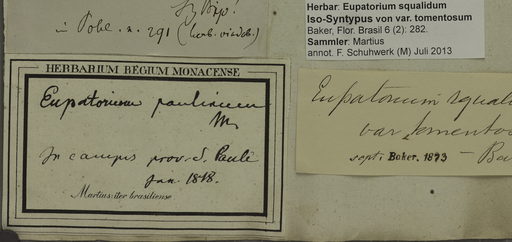 in Pohl. n. 291 (herb. vindob.)
Herbar: Eupatorium squalidum
Iso-Syntypus von var. tomentosum
Baker, Flor. Brasil 6 (2): 282.
Sammler: Martius
annot. F. Schuhwerk (M) Juli 2013
HERBARIUM REGIUM MONACENSE
Eupatorium paulinum
M.
In campis prov. S. Pauli
Jan. 1818.
Martius: iter brasiliense
Eupatorium squali
var tomento
sec. Baker. 1873 — Ba